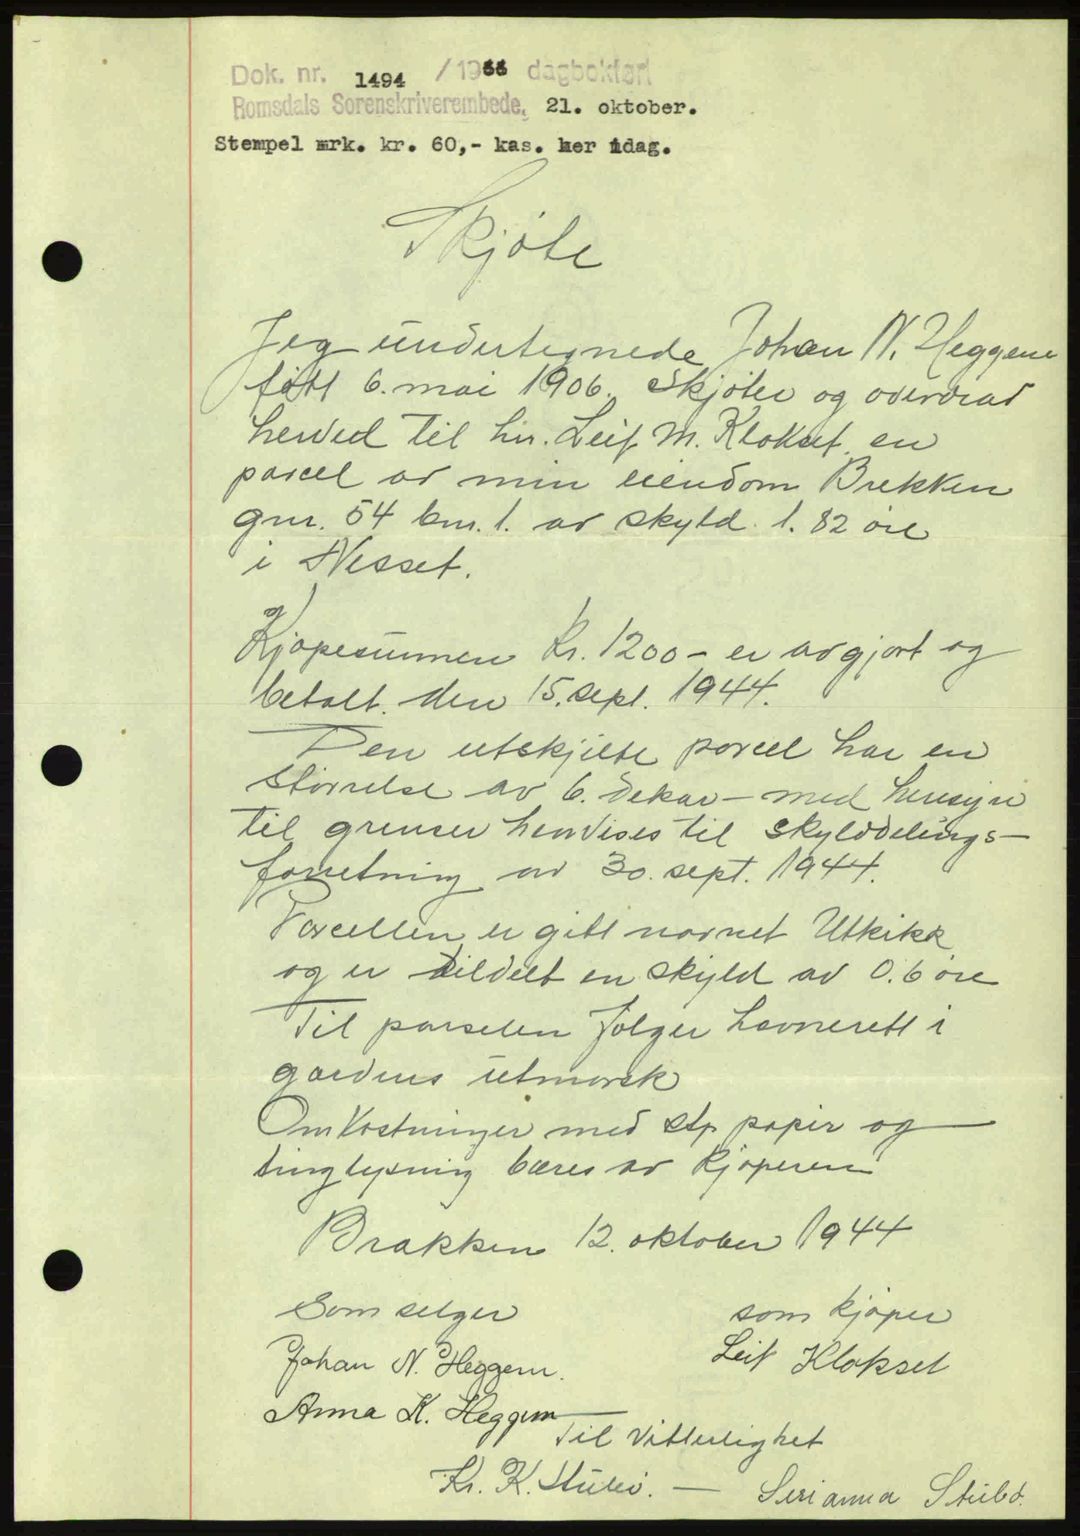 Dok. nr. 1494 /1944 dagbokført
Romsdals Sorenskriverembede, 21. oktober.
Stempel mrk. kr. 60,- kas. her idag.
Skjøte
Jeg undertegnede Johan N. Heggem
født 6. mai 1906. Skjøter og overdrar
herved til hr. Leif M. Klokset en
parcel av min eiendom Brekken
gnr. 54 bnr. 1. av skyld 1.82 øre
i Nesset.
Kjøpesummen Kr. 1200- er avgjort og
betalt den 15. sept. 1944.
Den utskjilte parcel har en
størrelse av 6. dekar - med hensyn
til grenser henvises til skylddelings-
forretning av 30. sept. 1944.
Parcellen er gitt navnet Utkikk
og er tildelt en skyld av 0.6 øre
Til parselen følger havnerett i
gardens utmark
Omkostninger med stp papir og
tinglysning bæres av kjøperen
Brakken 12. oktober 1944
Som selger som kjøper
Johan N. Heggem. Leif Klokset
Anna K. Heggem
Til Vitterlighet
Kr. K. - Serianna